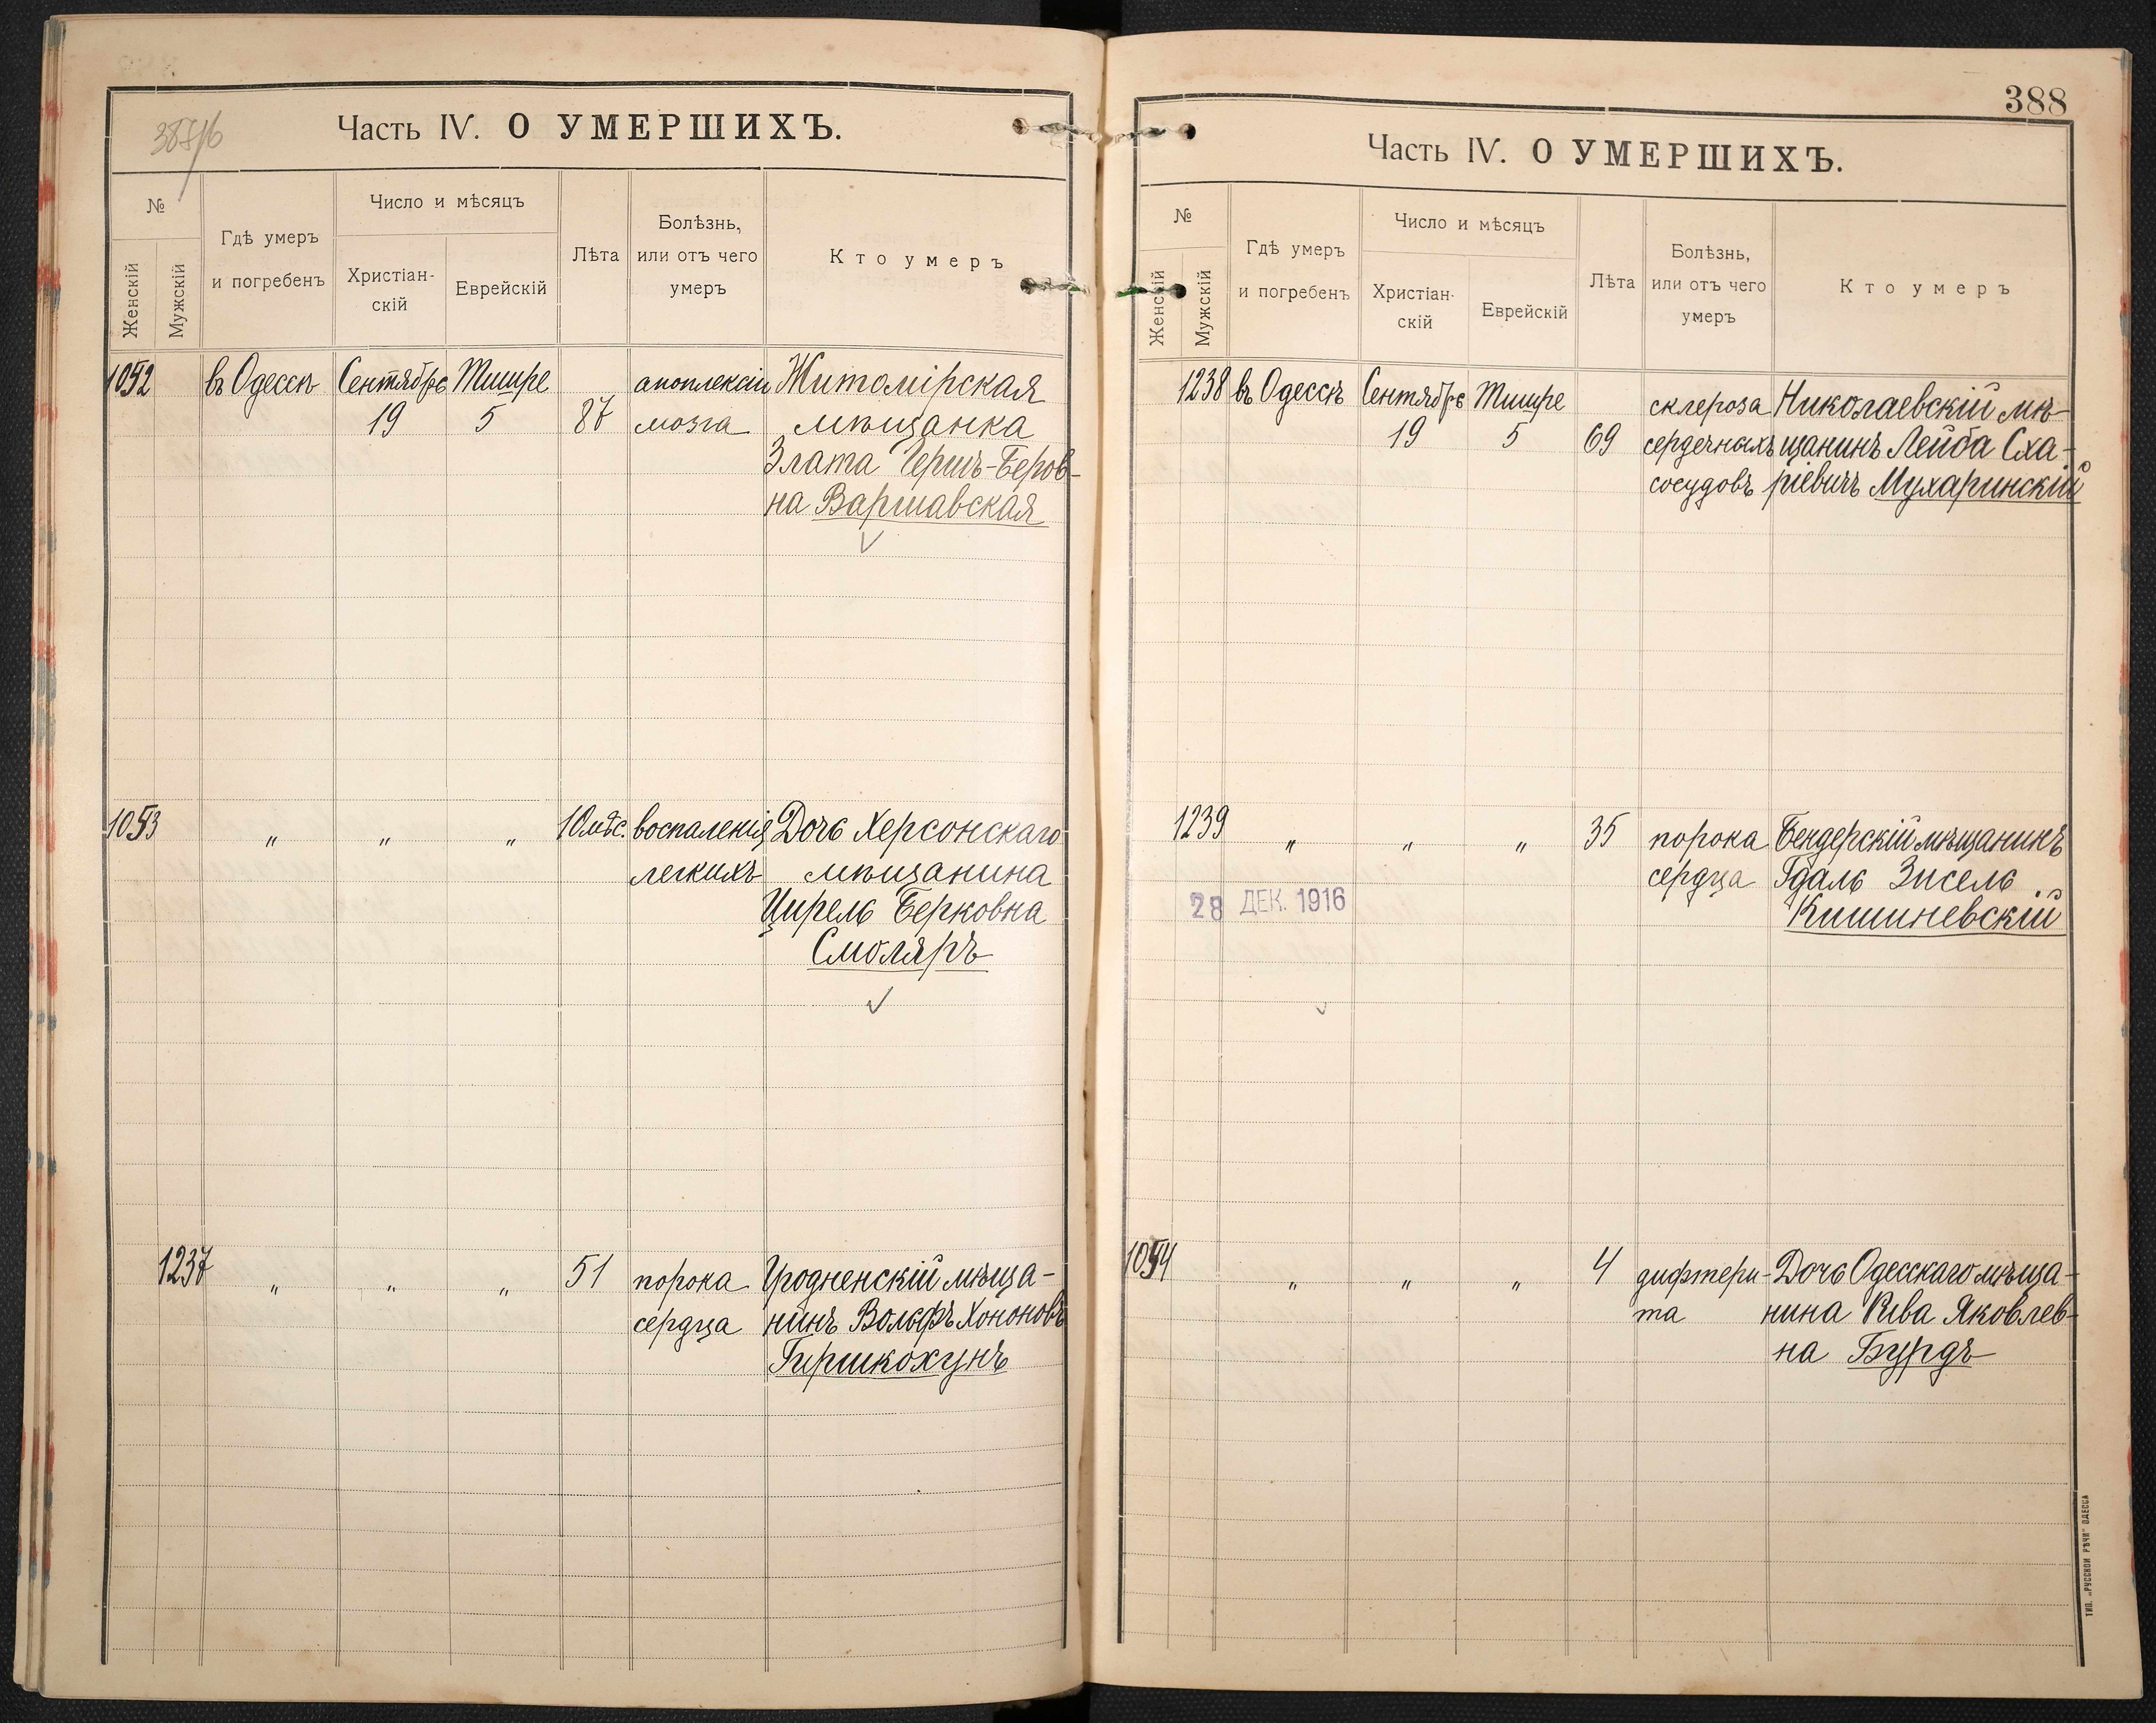 Часть IV. О УМЕРШИХЪ.
№
Женскій
Мужскій
Гдѣ умеръ
и погребенъ
Число и мѣсяцъ
Христіан-
скій
Еврейскій
Лѣта
Болѣзнь,
или отъ чего
умеръ
Кто умеръ
1052 въ Одессѣ Сентябрь Тишре апоплексіи Житомірская
19 5 87 мозга мѣщанка
Злата Герш-Беров-
на Варшавская
1053 " " " 10 мѣс. воспаленія Дочь Херсонскаго
легкихъ мѣщанина
Цирель Берковна
Смоляръ
1237 " " " 51 порока Гродненскій мѣща-
сердца нинъ Вольфъ Хононовъ
Гиршкохунъ
388
Часть IV. О УМЕРШИХЪ.
№
Женскій
Мужскій
Гдѣ умеръ
и погребенъ
Число и мѣсяцъ
Христіан-
скій
Еврейскій
Лѣта
Болѣзнь,
или отъ чего
умеръ
Кто умеръ
1238 въ Одессѣ Сентябрь Тишре склероза Николаевскій мѣ-
19 5 69 сердечныхъ щанинъ Лейба Сха-
сосудовъ ріевичъ Мухаринскій
1239 " " " 35 порока Бендерскій мѣщанинъ
сердца Гдаль Зисель
28 ДЕК. 1916 Кишиневскій
1054 " " " 4 дифтери- Дочь Одесскаго мѣща-
та нина Рива Яковлев-
на Бурдъ
ТИП. „РУССКОЙ РѢЧИ" ОДЕССА